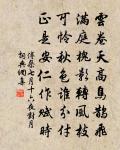 雲卷天高烏鵲飛
滿庭影轉風枝
可憐秋色誰分付
正是安仁作賦時
傅察七月十六夜對月
詞典網集